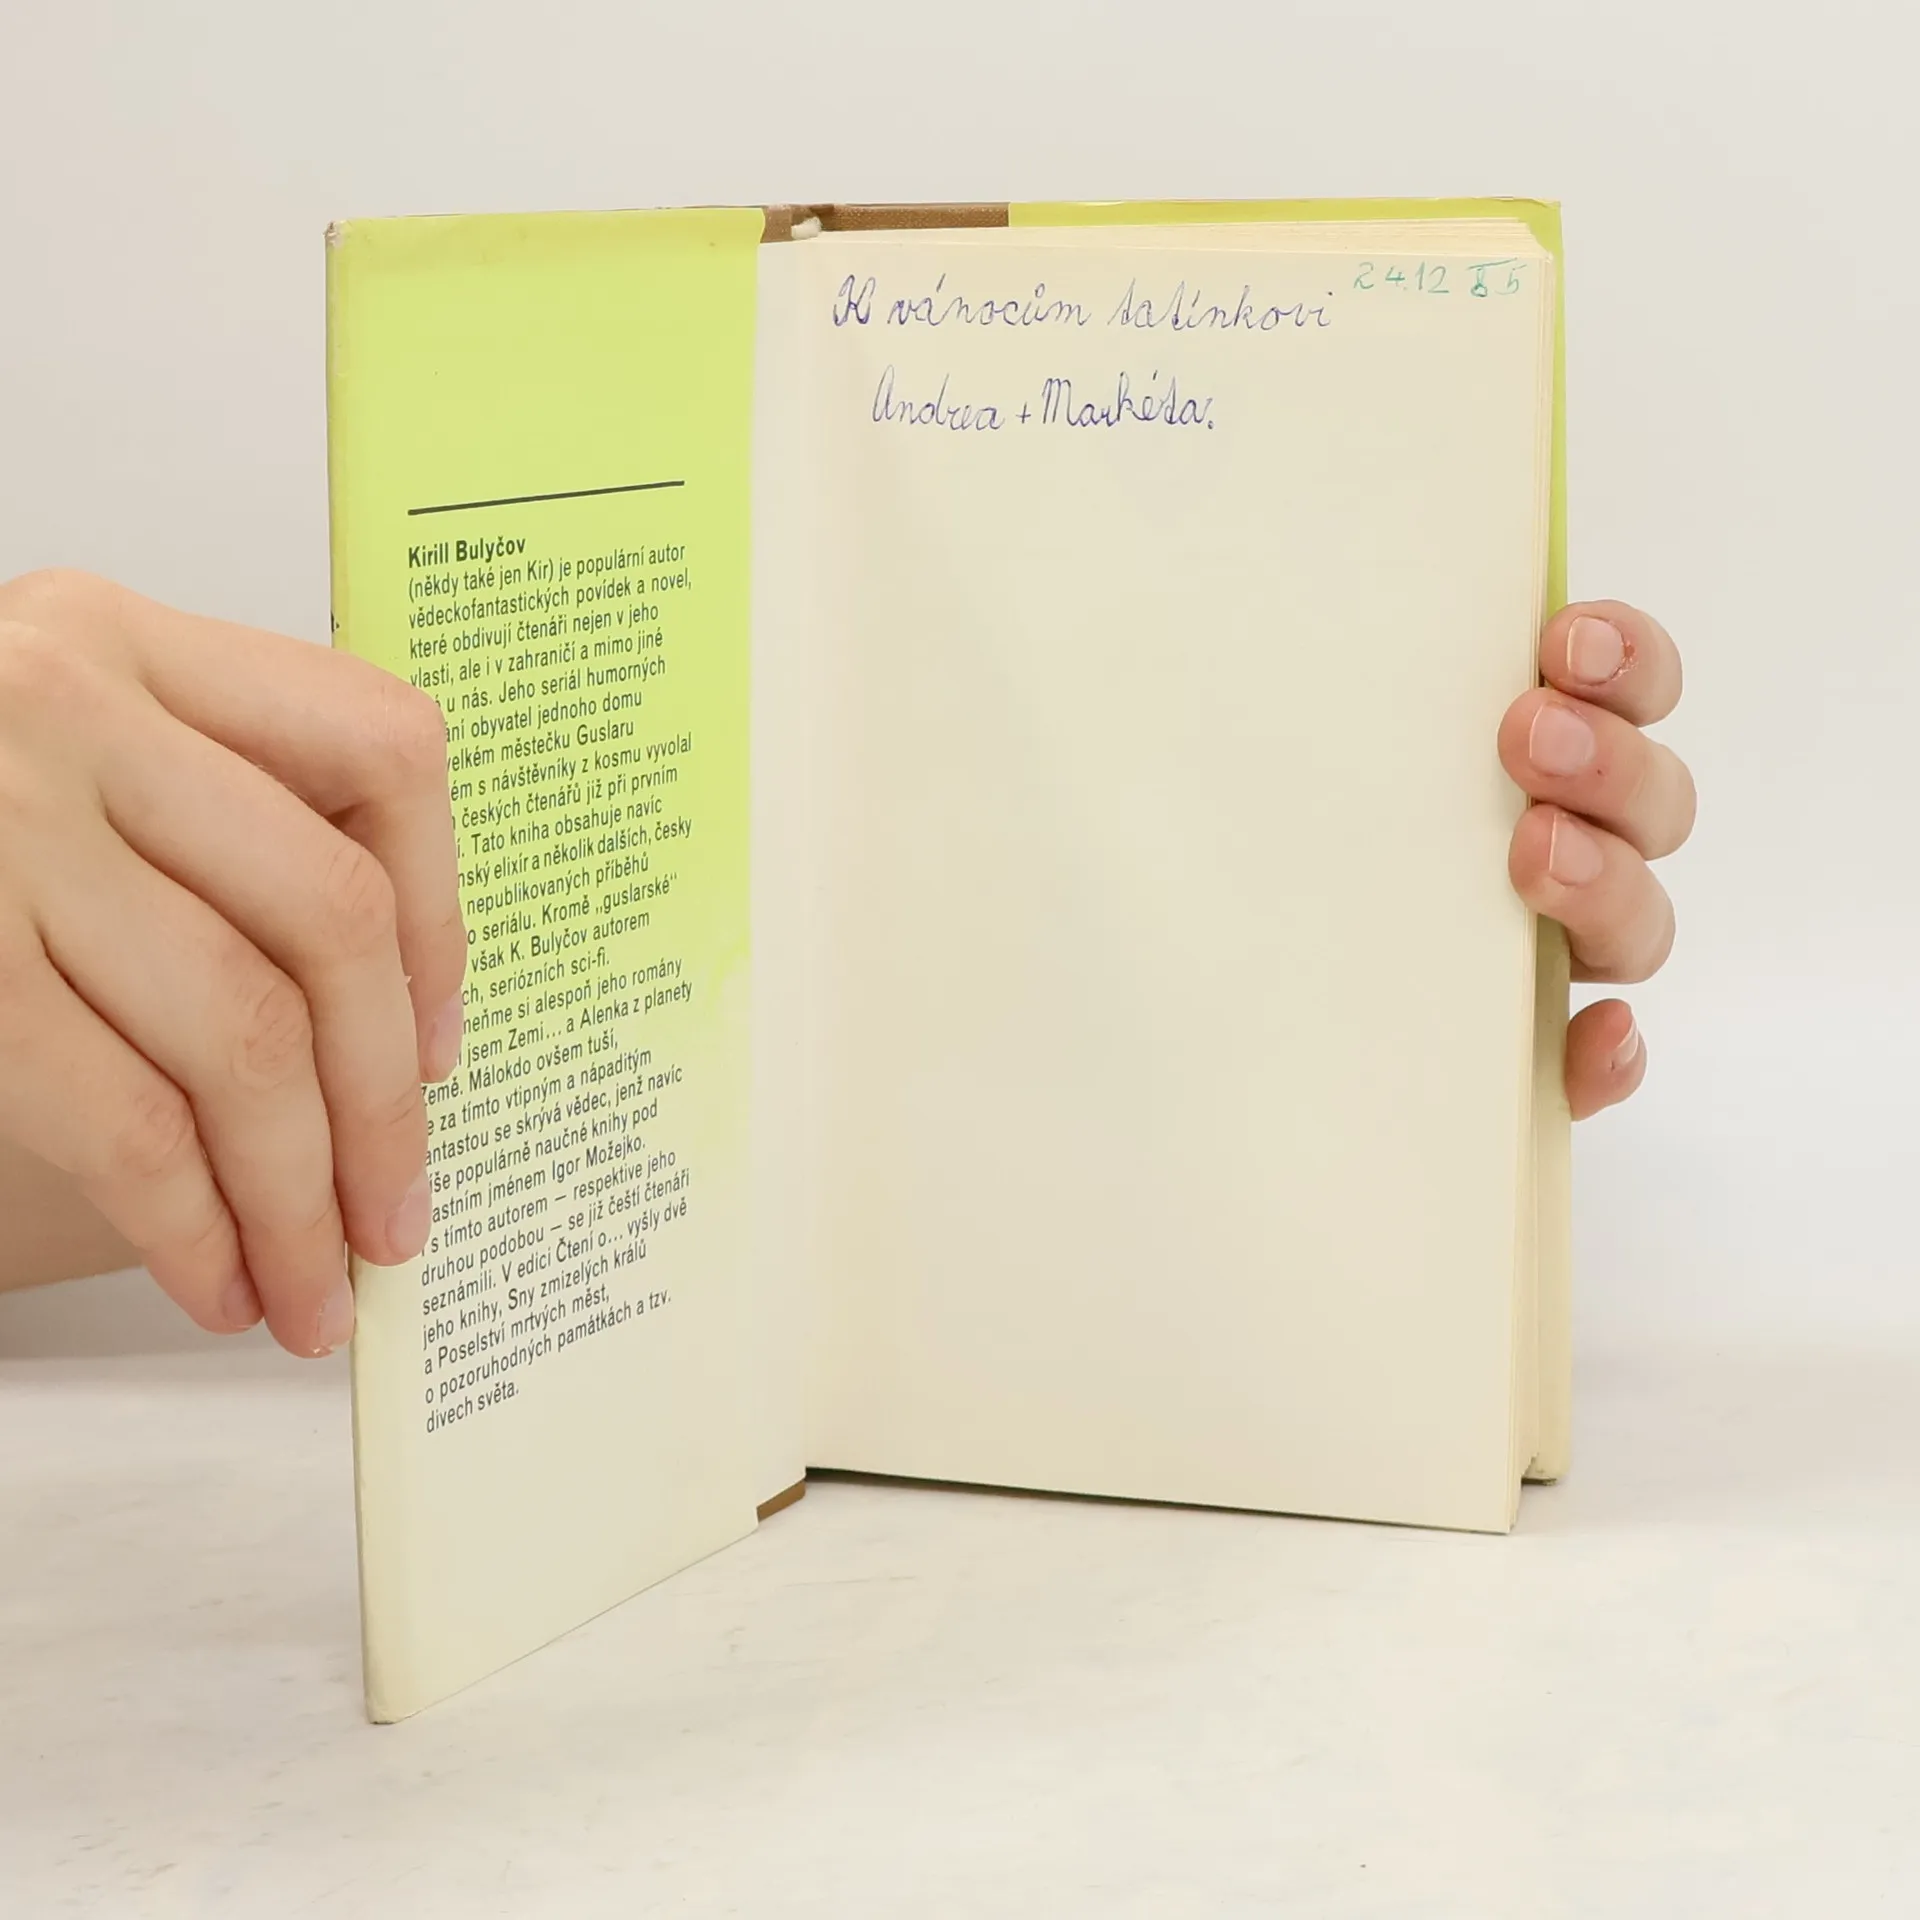 Kirill Bulyčov
(někdy také jen Kir) je populární autor
vědeckofantastických povídek a novel,
které obdivují čtenáři nejen v jeho
vlasti, ale i v zahraničí a mimo jiné
u nás. Jeho seriál humorných
obyvatel jednoho domu
městečku Guslaru
s návštěvníky z kosmu vyvolal
českých čtenářů již při prvním
Tato kniha obsahuje navíc
elixír a několik dalších, česky
nepublikovaných příběhů
seriálu. Kromě „guslarské“
však K. Bulyčov autorem
seriózních sci-fi.
si alespoň jeho romány
jsem Zemi... a Alenka z planety
Země. Málokdo ovšem tuší,
za tímto vtipným a nápaditým
se skrývá vědec, jenž navíc
populárně naučné knihy pod
jménem Igor Možejko.
s tímto autorem — respektive jeho
druhou podobou — se již čeští čtenáři
seznámili. V edici Čtení o... vyšly dvě
jeho knihy, Sny zmizelých králů
a Poselství mrtvých měst,
o pozoruhodných památkách a tzv.
divech světa.
24.12 85
K vánocům tatínkovi
Andrea + Markéta.